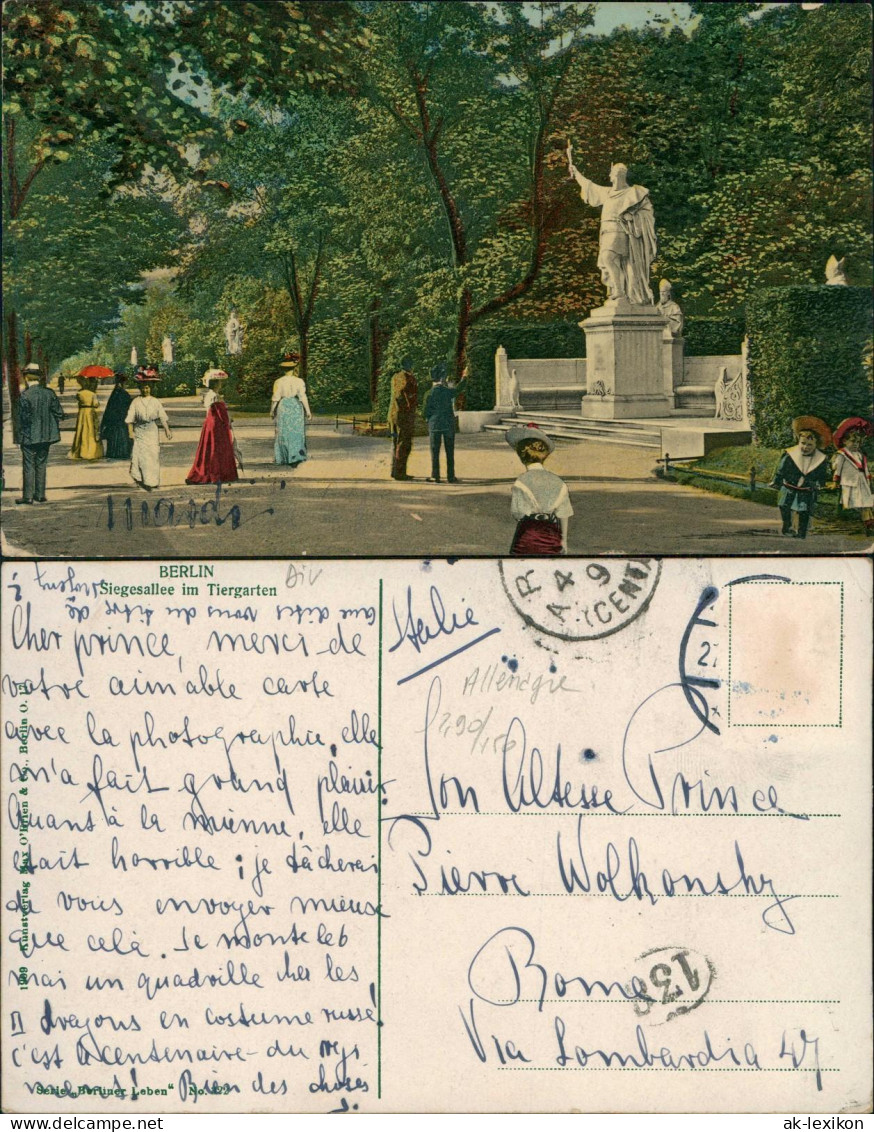 mardi
BERLIN
Siegesallee im Tiergarten
Div
que dites vous du titre de
Cher prince, merci de
votre aimable carte
avec la photographie, elle
m'a fait grand plaisir.
Quant à la mienne, elle
était horrible; je tâcherai
de vous envoyer mieux
que celà. Je monte le 6
mai un quadrille chez les
II dragons en costume russe!
c'est le centenaire du
Bien des choses
Kunstverlag Max O'Brien & Co., Berlin O. 17
1909
Serie „Berliner Leben" No.
Italie
Allemagne
290/150
Son Altesse Prince
Pierre Wolkonsky
Rome
Via Lombardia 47
138
R
A 4 9
(CENTR
27
ak-lexikon